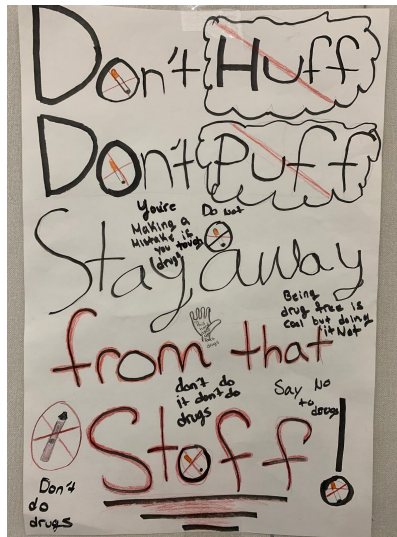 Don't Huff
Don't Puff
You're
Making a
Mistake if
you touch
drugs
Do not
Stay away
Being
drug free is
cool but doing
it Not
from that
don't do
it don't do
drugs
Say No
to drugs
Stoff!
Don't
do
drugs